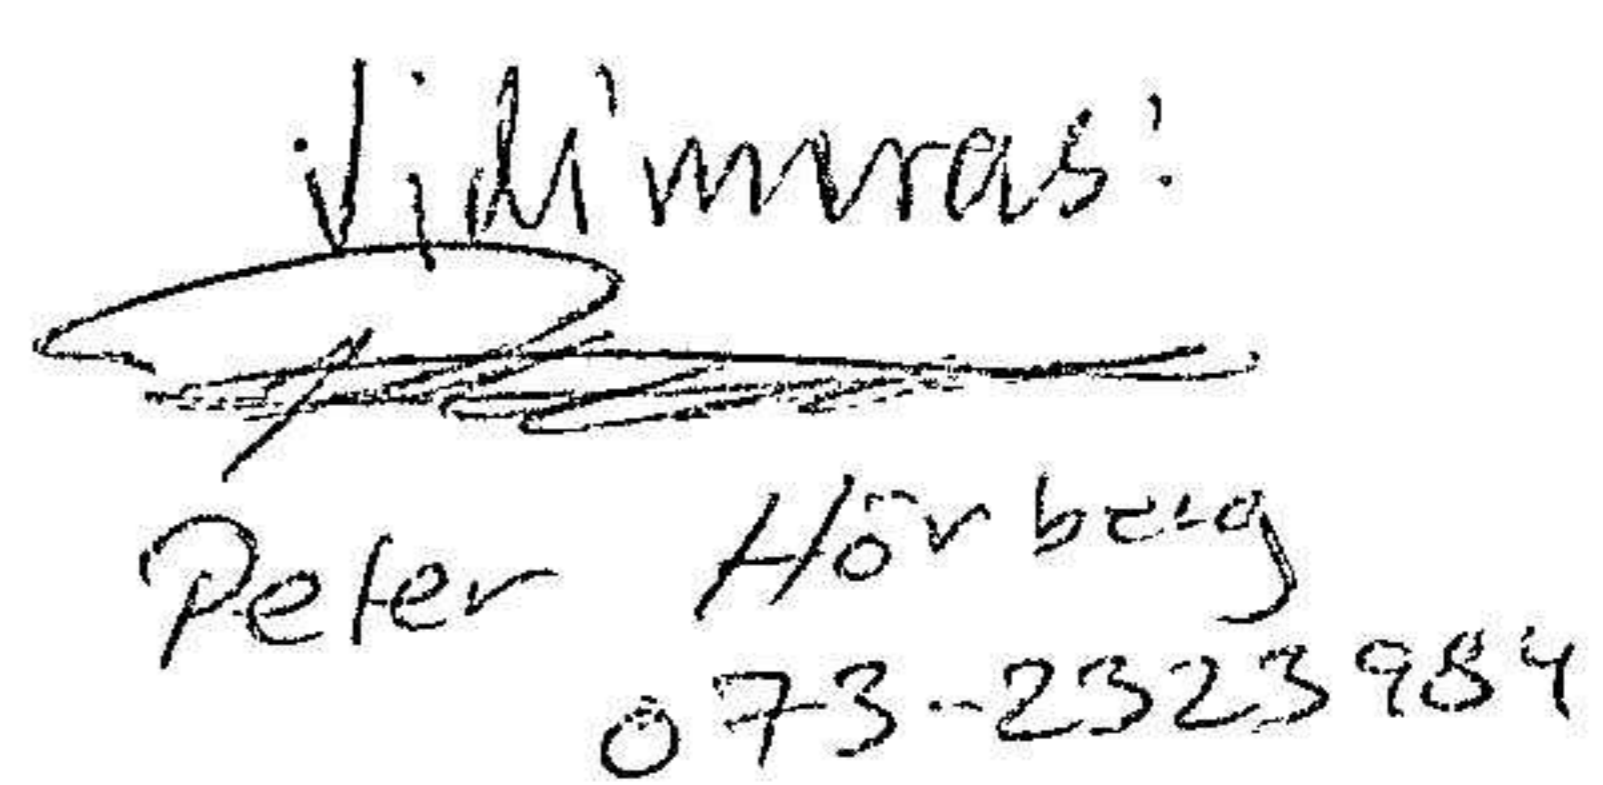 Vidimeras:
Peter Hörberg
073-2323984